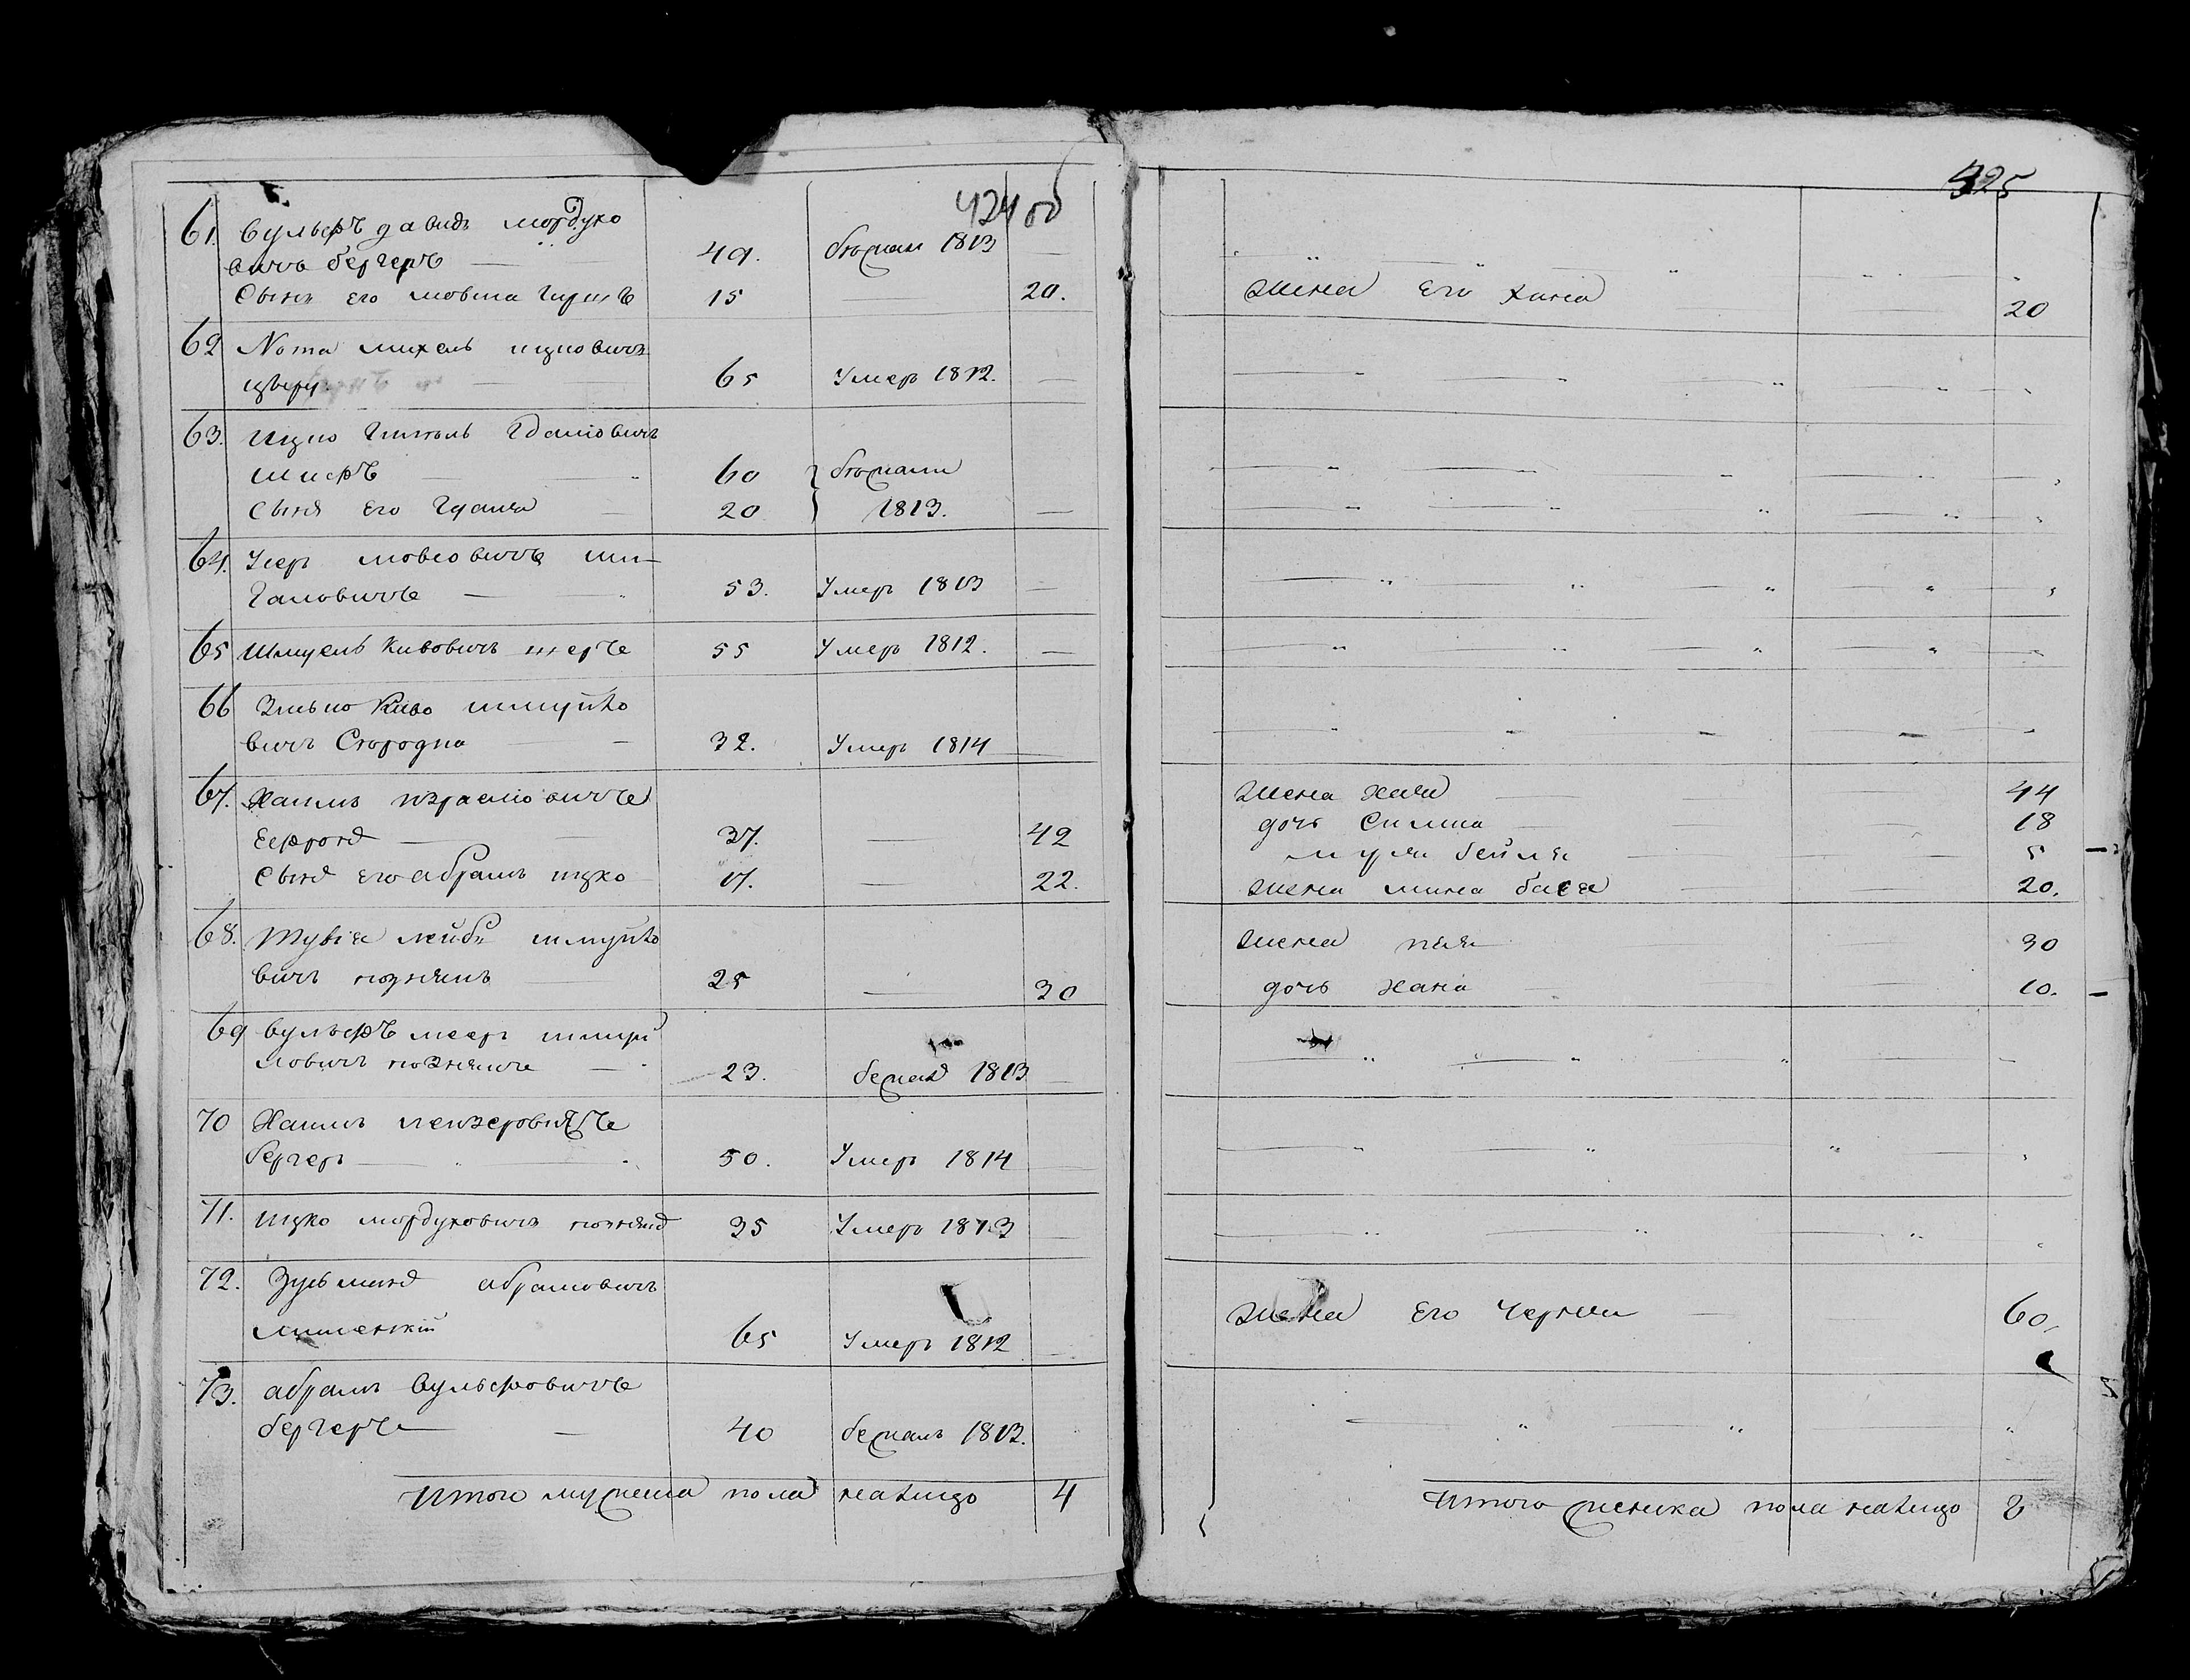 424 об
61. Вульфъ давидъ мордухо
вичъ бергеръ 49. бѣжалъ 1813
Сынъ его мовша гиршъ 15 20.
62 Nота михель ицковичъ
65 Умеръ 1812.
63. Ицко
60 бѣжали
Сынъ его Гдаля 20 1813.
64. Усеръ мовшовичъ
53. Умеръ 1813
65 Шмуель Кивовичъ 55 Умеръ 1812.
66 Зелько Киво шмуйло
вичъ 32. Умеръ 1814
67. Хаимъ израелiовичъ
37. 42
Сынъ его абрамъ ицко 17. 22.
68. Тувiя лейба шмуйло
вичъ познякъ 25 30
69 Вульфъ мееръ шмуй
ловичъ познякъ 23. бежалъ 1813
70 Хаимъ лейзеровичъ
бергеръ 50. Умеръ 1814
71. Ицко мордуховичъ познякъ 35 Умеръ 1813
72. Зульманъ абрамовичъ
65 Умеръ 1812
73. абрамъ Вульфовичъ
бергеръ 40 бежалъ 1813.
Итого мужеска пола налицо 4
425
жена его Хана 20
жена Хая 44
дочь Симка 18
бейля 5
жена мина бася 20.
жена 30
дочь Хана 10.
жена его Черна 60.
Итого женска пола налицо 8